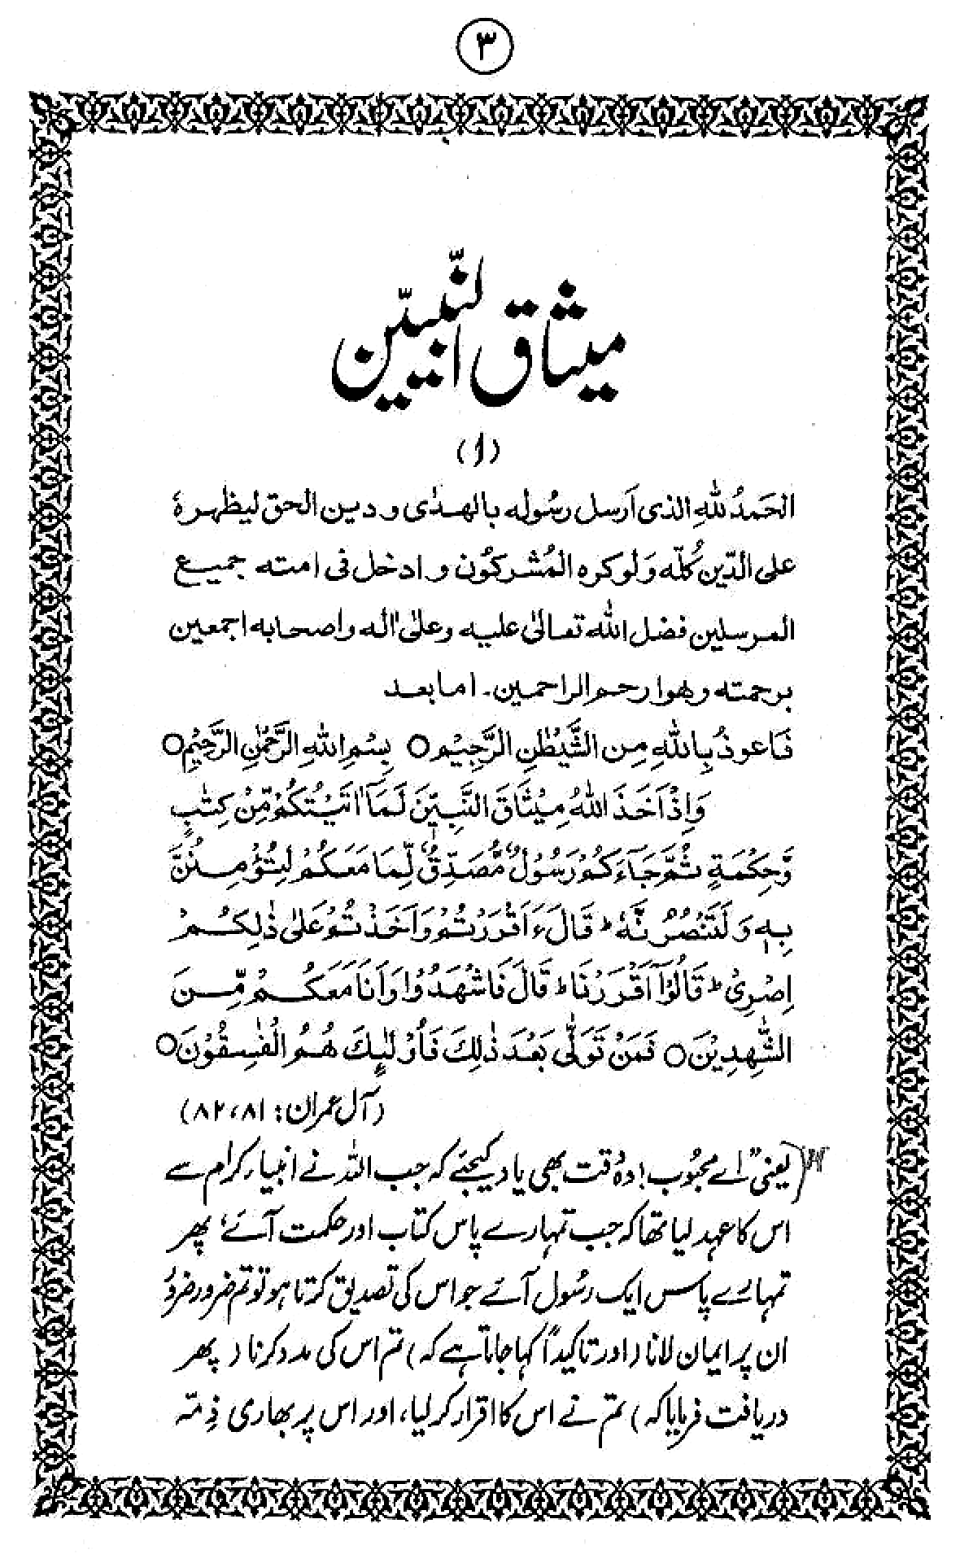 ۳
میثاق النبیّین
(۱)
الحَمدُ للهِ الذی اَرسل رسُوله بالھدٰی و دین الحق لیظھرہٗ
علی الدّین کُلّه وَلَو کرہ المُشرکُون و ادخل فی امته جمیع
المرسلین فضل الله تعالیٰ علیه وعلیٰ اٰله واصحابه اجمعین
برحمته وھوارحم الراحمین۔ اما بعد
فَاعوذُ بِاللهِ مِن الشَّیْطٰنِ الرَّجِیْم○ بِسْمِ اللهِ الرَّحْمٰنِ الرَّحِیْمِ○
وَاِذْ اَخَذَ اللهُ مِیْثَاقَ النَّبِیّٖنَ لَمَآ اٰتَیْتُکُمْ مِّنْ کِتٰبٍ
وَّحِکْمَةٍ ثُمَّ جَآءَکُمْ رَسُوْلٌ مُّصَدِّقٌ لِّمَا مَعَکُمْ لَتُؤْمِنُنَّ
بِهٖ وَلَتَنْصُرُنَّهٗ ؕ قَالَ ءَاَقْرَرْتُمْ وَاَخَذْتُمْ عَلٰی ذٰلِکُمْ
اِصْرِیْ ؕ قَالُوْٓا اَقْرَرْنَا ؕ قَالَ فَاشْهَدُوْا وَاَنَا مَعَکُمْ مِّنَ
الشّٰهِدِیْنَ○ فَمَنْ تَوَلّٰی بَعْدَ ذٰلِکَ فَاُولٰٓئِکَ هُمُ الْفٰسِقُوْنَ○
(آل عمران: ۸۱، ۸۲)
یعنی ”اے محبوب! وہ وقت بھی یاد کیجئے کہ جب اللہ نے انبیاء کرام سے
اس کا عہد لیا تھا کہ جب تمہارے پاس کتاب اور حکمت آئے، پھر
تمہارے پاس ایک رسُول آئے جو اس کی تصدیق کرتا ہو تو تم ضرور ضرور
ان پر ایمان لانا (اور تاکیداً کہا جاتا ہے کہ) تم اس کی مدد کرنا (پھر
دریافت فرمایا کہ) تم نے اس کا اقرار کر لیا، اور اس پر بھاری ذِمّہ